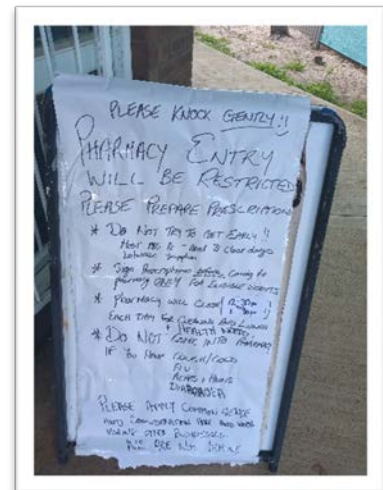 PLEASE KNOCK GENTRY !!
PHARMACY ENTRY
WILL BE RESTRICTED
PLEASE PREPARE PRESCRIPTIONS
* DO NOT TRY TO GET EARLY !!
MOST - NEED 20 CLEAR DAYS
BETWEEN SUPPLIES
* Sign Prescriptions before coming to
pharmacy ONLY FOR ELIGIBLE PATIENTS
* PHARMACY WILL CLOSE 12.30pm
EACH DAY FOR CLEANING AND LUNCH
+ HEALTH
* DO NOT COME INTO PHARMACY
IF YOU HAVE COUGH/COLD
FLU
ACHES + PAINS
DIARRHOEA
PLEASE APPLY COMMON SENSE
AND CONSIDERATION HERE AND WHEN
VISITING OTHER BUSINESSES.